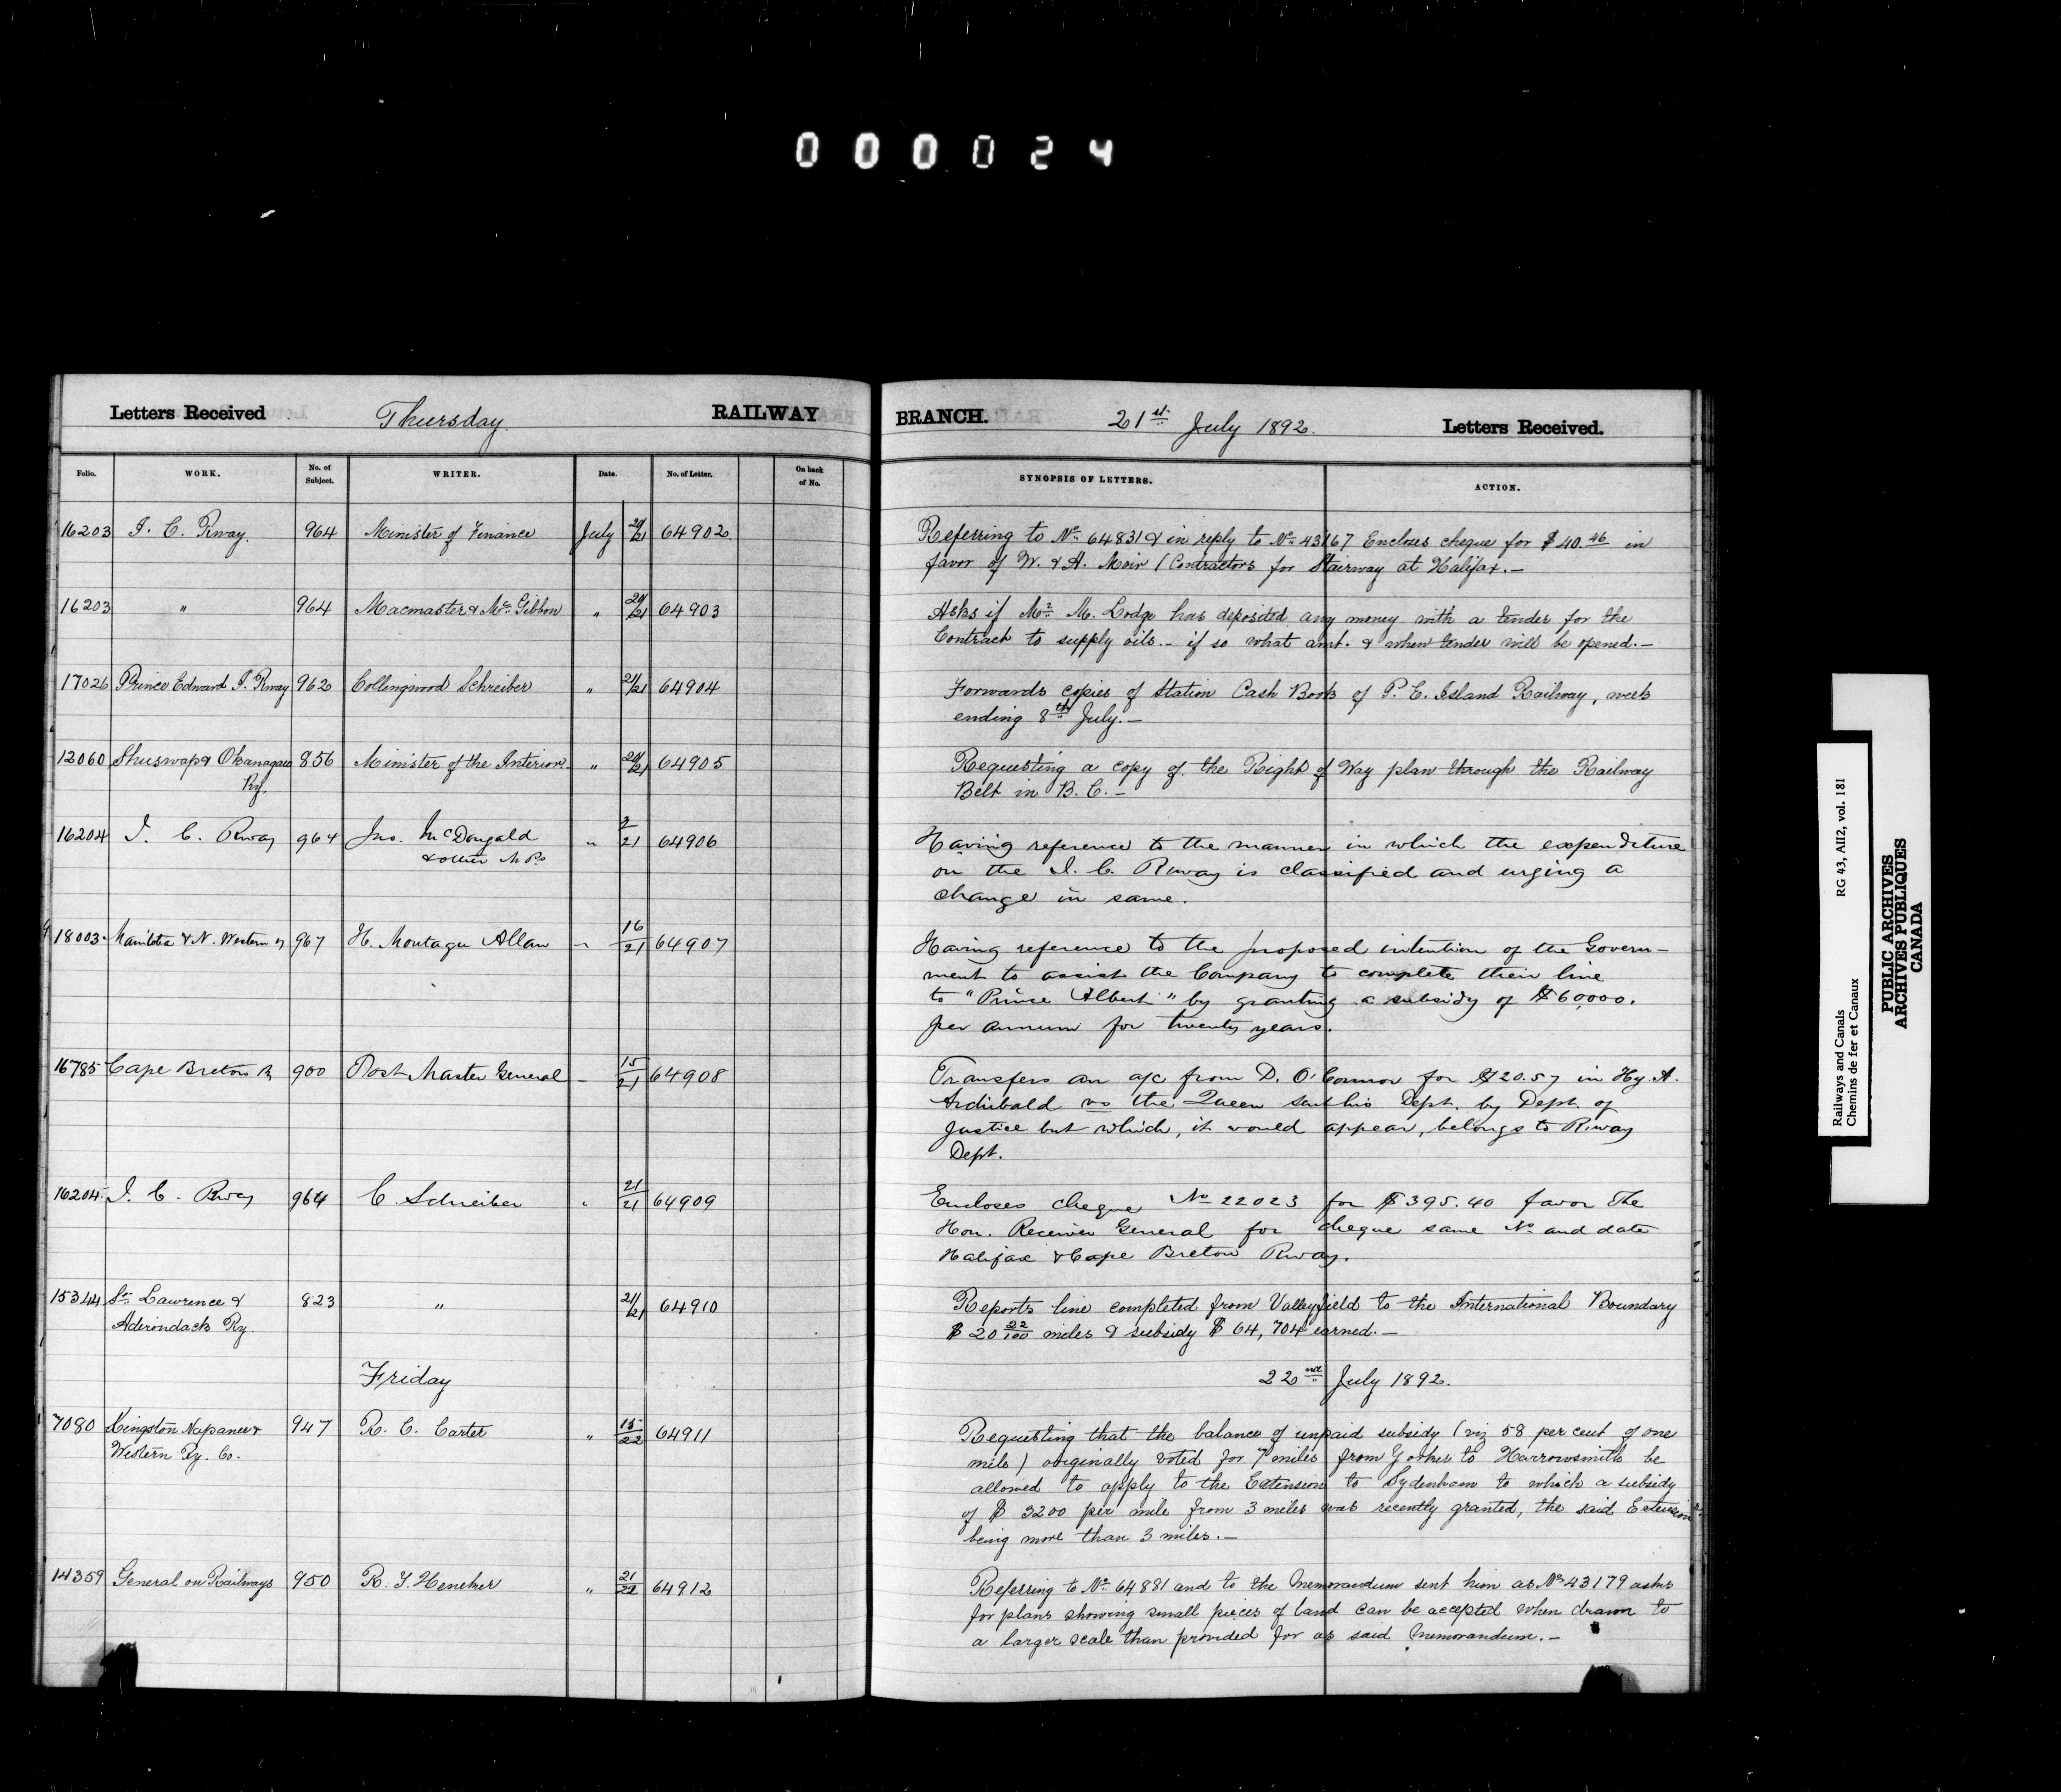 000024
Letters Received Thursday RAILWAY BRANCH. 21st July 1892. Letters Received.
Folio. WORK. No. of Subject. WRITER. Date. No. of Letter. On back of No. SYNOPSIS OF LETTERS. ACTION.
16203 I. C. Rway. 964 Minister of Finance July 20/21 64902 Referring to No. 64831 & in reply to No. 43167 Encloses cheque for $40.46 in
favor of W. & A. Moir (Contractors for Stairway at Halifax.—
16203 " 964 Macmaster & McGibbon " 20/21 64903 Asks if Mr. M. Lodge has deposited any money with a tender for the
Contract to supply oils.— if so what amt. & when tender will be opened.—
17026 Prince Edward I. Rway 962 Collingwood Schreiber " 21/21 64904 Forwards copies of Station Cash Book of P. E. Island Railway, week
ending 8th July.—
12060 Shuswap & Okanagan 856 Minister of the Interior " 20/21 64905 Requesting a copy of the Right of Way plan through the Railway
Ry. Belt in B. C.—
16204 I. C. Rway 964 Jno. McDougald " 2/21 64906 Having reference to the manner in which the expenditure
& other M Ps on the I. C. Rway is classified and urging a
change in same.
18003 Manitoba & N. Western Ry 967 H. Montagu Allan " 16/21 64907 Having reference to the proposed intention of the Govern-
ment to assist the Company to complete their line
to "Prince Albert" by granting a subsidy of $60,000.
per annum for twenty years.
16785 Cape Breton R 900 Post Master General " 15/21 64908 Transfers an a/c from D. O'Connor for $20.57 in Hy. A.
Archibald vs the Queen sent his Dept. by Dept. of
Justice but which, it would appear, belongs to Rway
Dept.
16204 I. C. Rway 964 C. Schreiber " 21/21 64909 Encloses cheque No 22023 for $395.40 favor The
Hon. Receiver General for cheque same No and date
Halifax & Cape Breton Rway.
15344 St. Lawrence & 823 " 21/21 64910 Reports line completed from Valleyfield to the International Boundary
Adirondack Ry. $ 20 22/100 miles & subsidy $ 64,704 earned.—
Friday 22nd July 1892.
7080 Kingston Napanee & 947 R. C. Carter " 15/22 64911 Requesting that the balance of unpaid subsidy (viz 58 per cent of one
Western Ry. Co. mile) originally voted for 7 miles from Yarker to Harrowsmith be
allowed to apply to the Extension to Sydenham to which a subsidy
of $ 3200 per mile from 3 miles was recently granted, the said Extension
being more than 3 miles.—
14359 General on Railways 950 R. T. Heneker " 21/22 64912 Referring to No. 64881 and to the Memorandum sent him as No. 43179 asks
for plans showing small pieces of land can be accepted when drawn to
a larger scale than provided for as said Memorandum.—
Railways and Canals RG 43, AII2, vol. 181
Chemins de fer et Canaux
PUBLIC ARCHIVES
ARCHIVES PUBLIQUES
CANADA